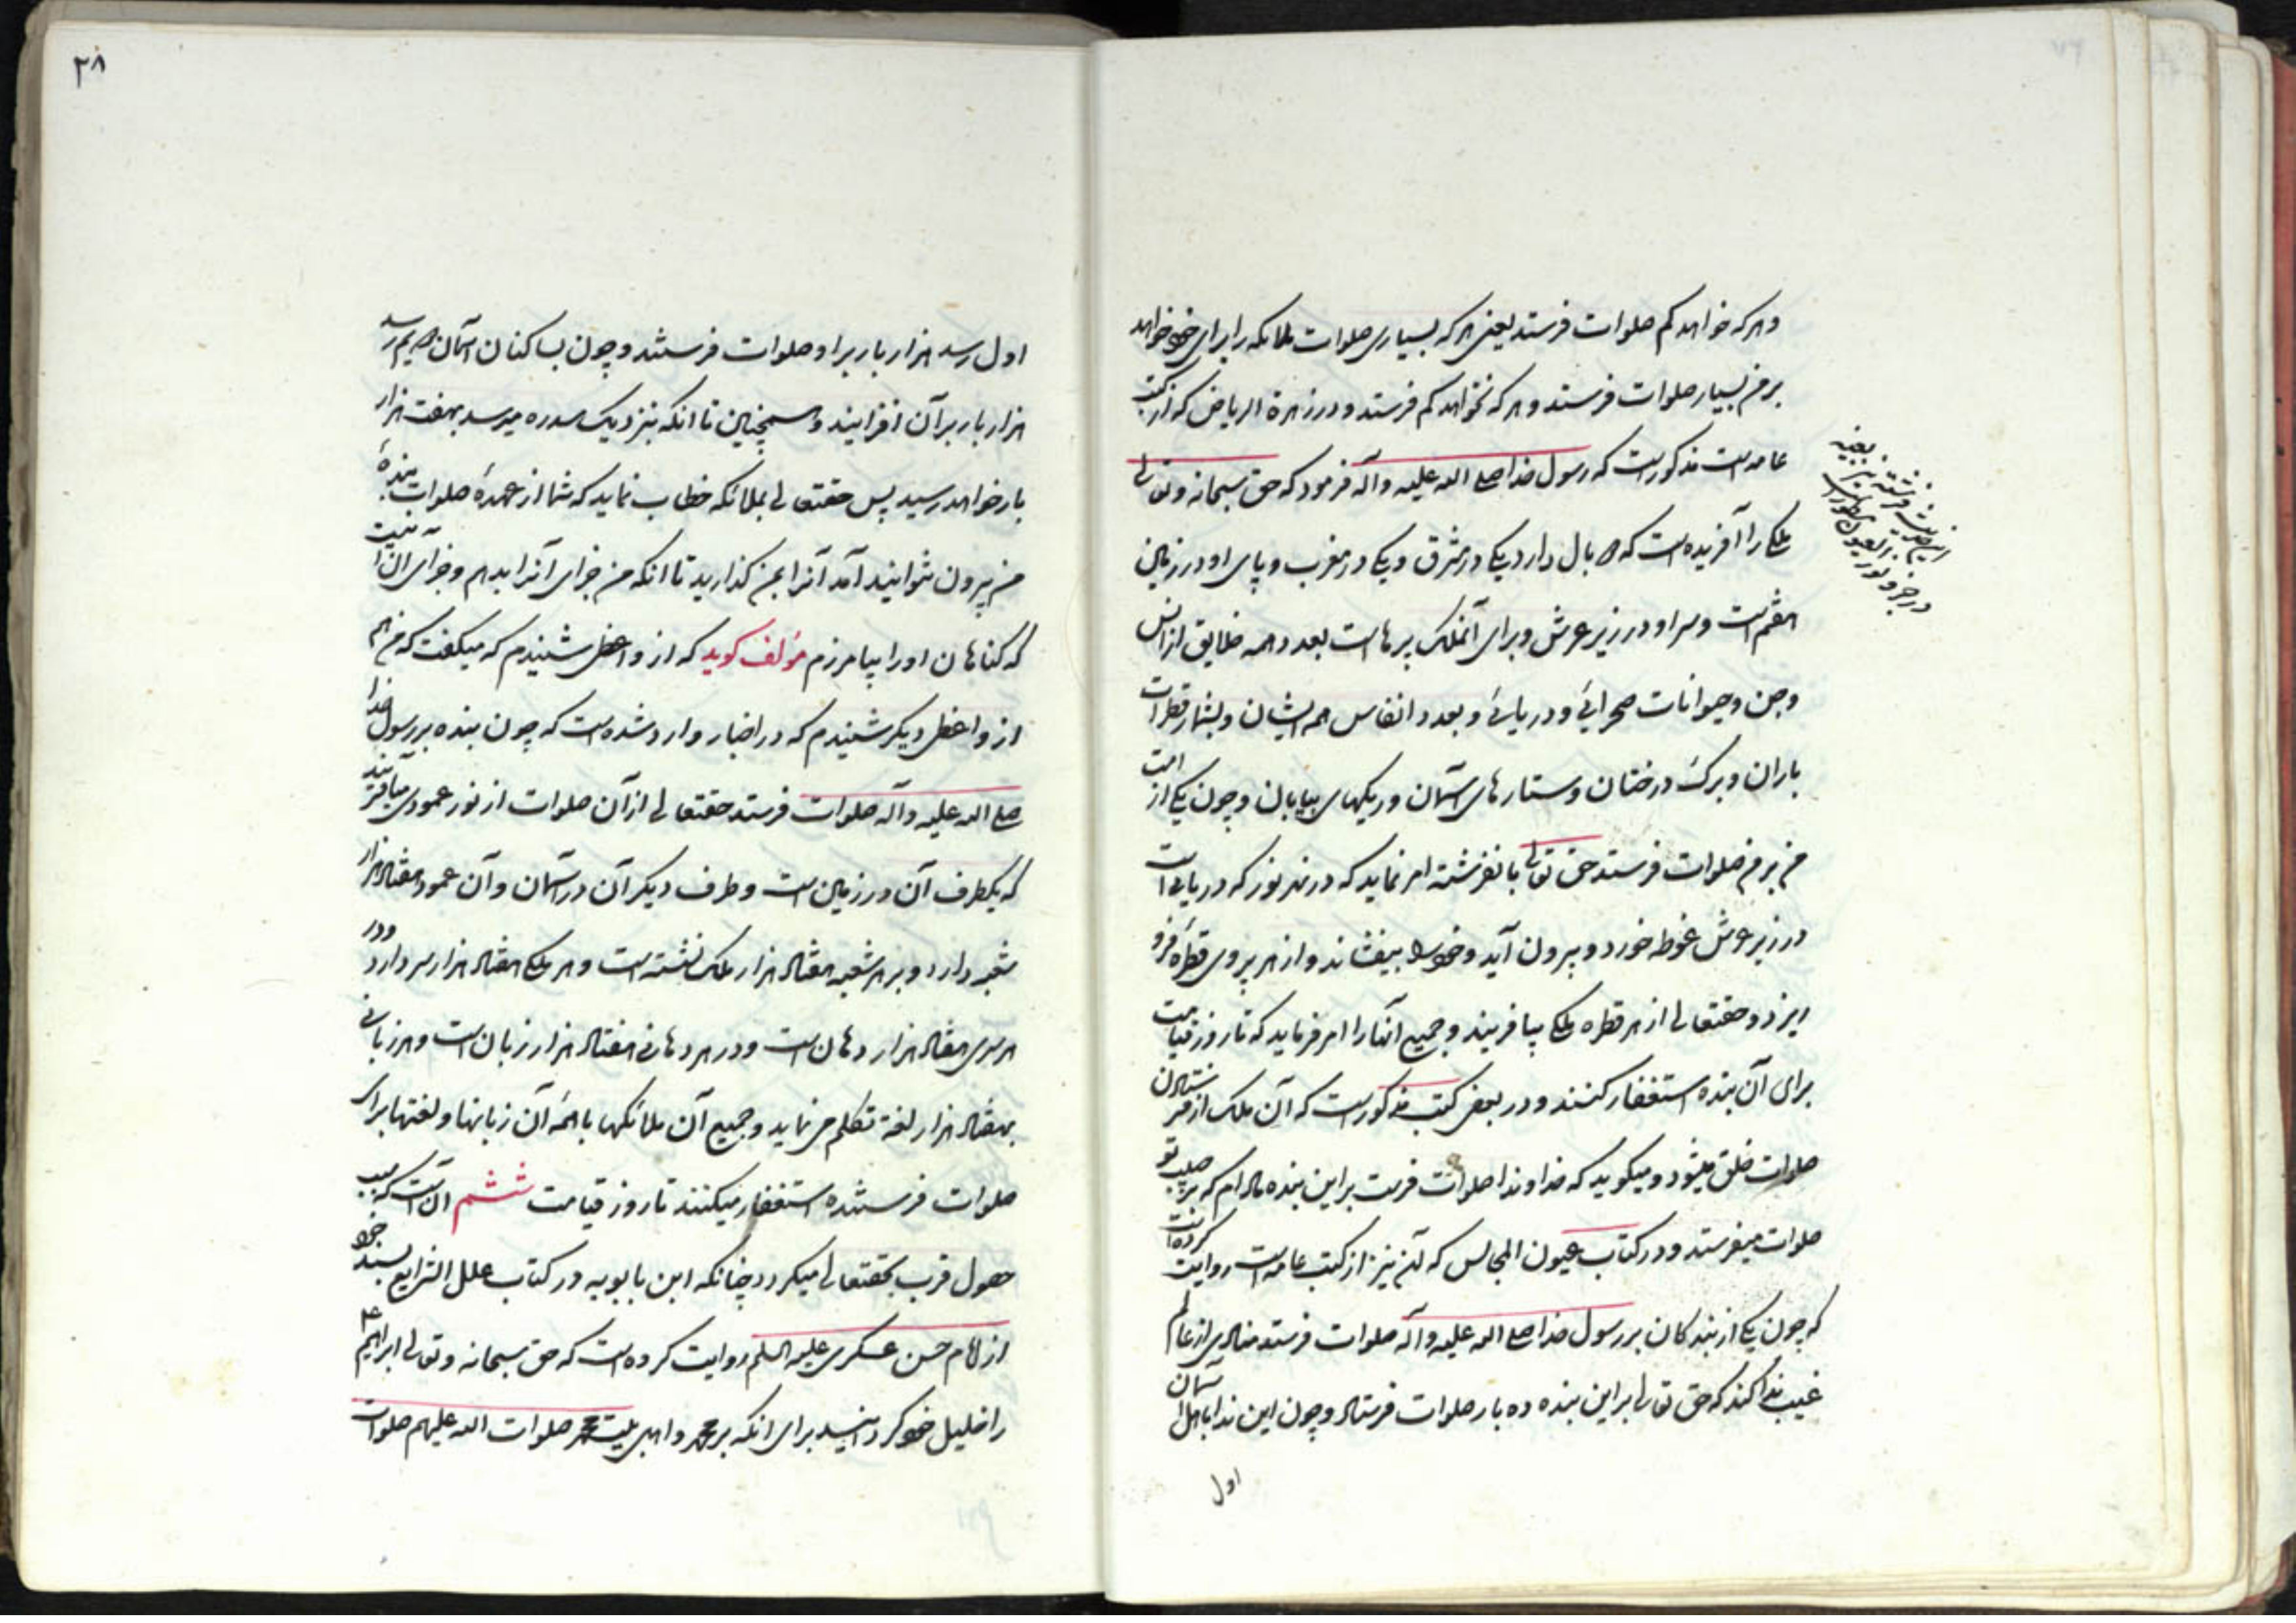 وهر که خواهد کم صلوات فرستد یعنی هر که بسیاری صلوات ملائکه را برای خود خواهد
بر من بسیار صلوات فرستد و هر که نخواهد کم فرستد و در زهرة الریاض که از کتب
عامه است مذکور است که رسول خدا صلی الله علیه وآله فرمود که حق سبحانه وتعالی
ملکی را آفریده است که دو بال دارد یکی در مشرق و یکی در مغرب و پای او در زمین
هفتم است و سر او در زیر عرش و برای آنملک پرهاست بعدد همه خلایق از انس
و جن و حیوانات صحرائی و دریائی و بعدد انفاس همه ایشان و بشمار قطرات
باران و برک درختان و ستارهای آسمان و ریکهای بیابان و چون یکی از امت
من بر من صلوات فرستد حق تعالی بانفرشته امر نماید که در نهر نور که دریایی است
در زیر عرش غوطه خورد و بیرون آید و خود را بیفشاند و از هر پر وی قطره فرو
ریزد و حقتعالی از هر قطره ملکی بیافریند و جمیع آنها را امر فرماید که تا روز قیامت
برای آن بنده استغفار کنند و در بعض کتب مذکور است که آن ملک از فرستادن
صلوات خلق میشود و میکوید که خداوندا صلوات فرست براین بنده مادام که بر حبیب تو
صلوات میفرستد و در کتاب عیون المجالس که آن نیز از کتب عامه است روایت کرده است
که چون یکی از بندکان بر رسول خدا صلی الله علیه وآله صلوات فرستد منادی از عالم
غیب ندا کند که حق تعالی براین بنده ده بار صلوات فرستاد و چون این ندا باهل آسمان
اول
این حدیث فرشته نیز بعینه
۲۸
اول رسد هزار بار بر او صلوات فرستند و چون بساکنان آسمان دویم رسد
هزار بار بر آن افزایند و همچنین تا انکه بنزدیک سدره میرسد بهفت هزار
بار خواهد رسید پس حقتعالی بملائکه خطاب نماید که شما از عهده صلوات بنده
من بیرون نتوانید آمد آنرا بمن کذارید تا انکه من جزای آنرا بدهم و جزای آن آنست
که کناهان او را بیامرزم مؤلف کوید که از واعظی شنیدم که میکفت که من هم
از واعظی دیکر شنیدم که در اخبار وارد شده است که چون بنده بر رسول خدا
صلی الله علیه وآله صلوات فرستد حقتعالی از آن صلوات از نور عمودی میآفریند
که یکطرف آن در زمین است و طرف دیکر آن در آسمان و آن عمود هفتاد هزار
شعبه دارد و بر هر شعبه هفتاد هزار ملک نشسته است و هر ملکی هفتاد هزار سر دارد و در
هر سری هفتاد هزار دهان است و در هر دهانی هفتاد هزار زبان است و هر زبانی
بهفتاد هزار لغة تکلم می نماید و جمیع آن ملائکها با همه آن زبانها و لغتها برای
صلوات فرستنده استغفار میکنند تا روز قیامت ششم آن است که سبب
حصول قرب بحقتعالی میکردد چنانکه ابن بابویه در کتاب علل الشرایع بسند خود
از امام حسن عسکری علیه السلم روایت کرده است که حق سبحانه وتعالی ابراهیم ع
را خلیل خود کردانید برای انکه بر محمد و اهل بیت محمد صلوات الله علیهم صلوات